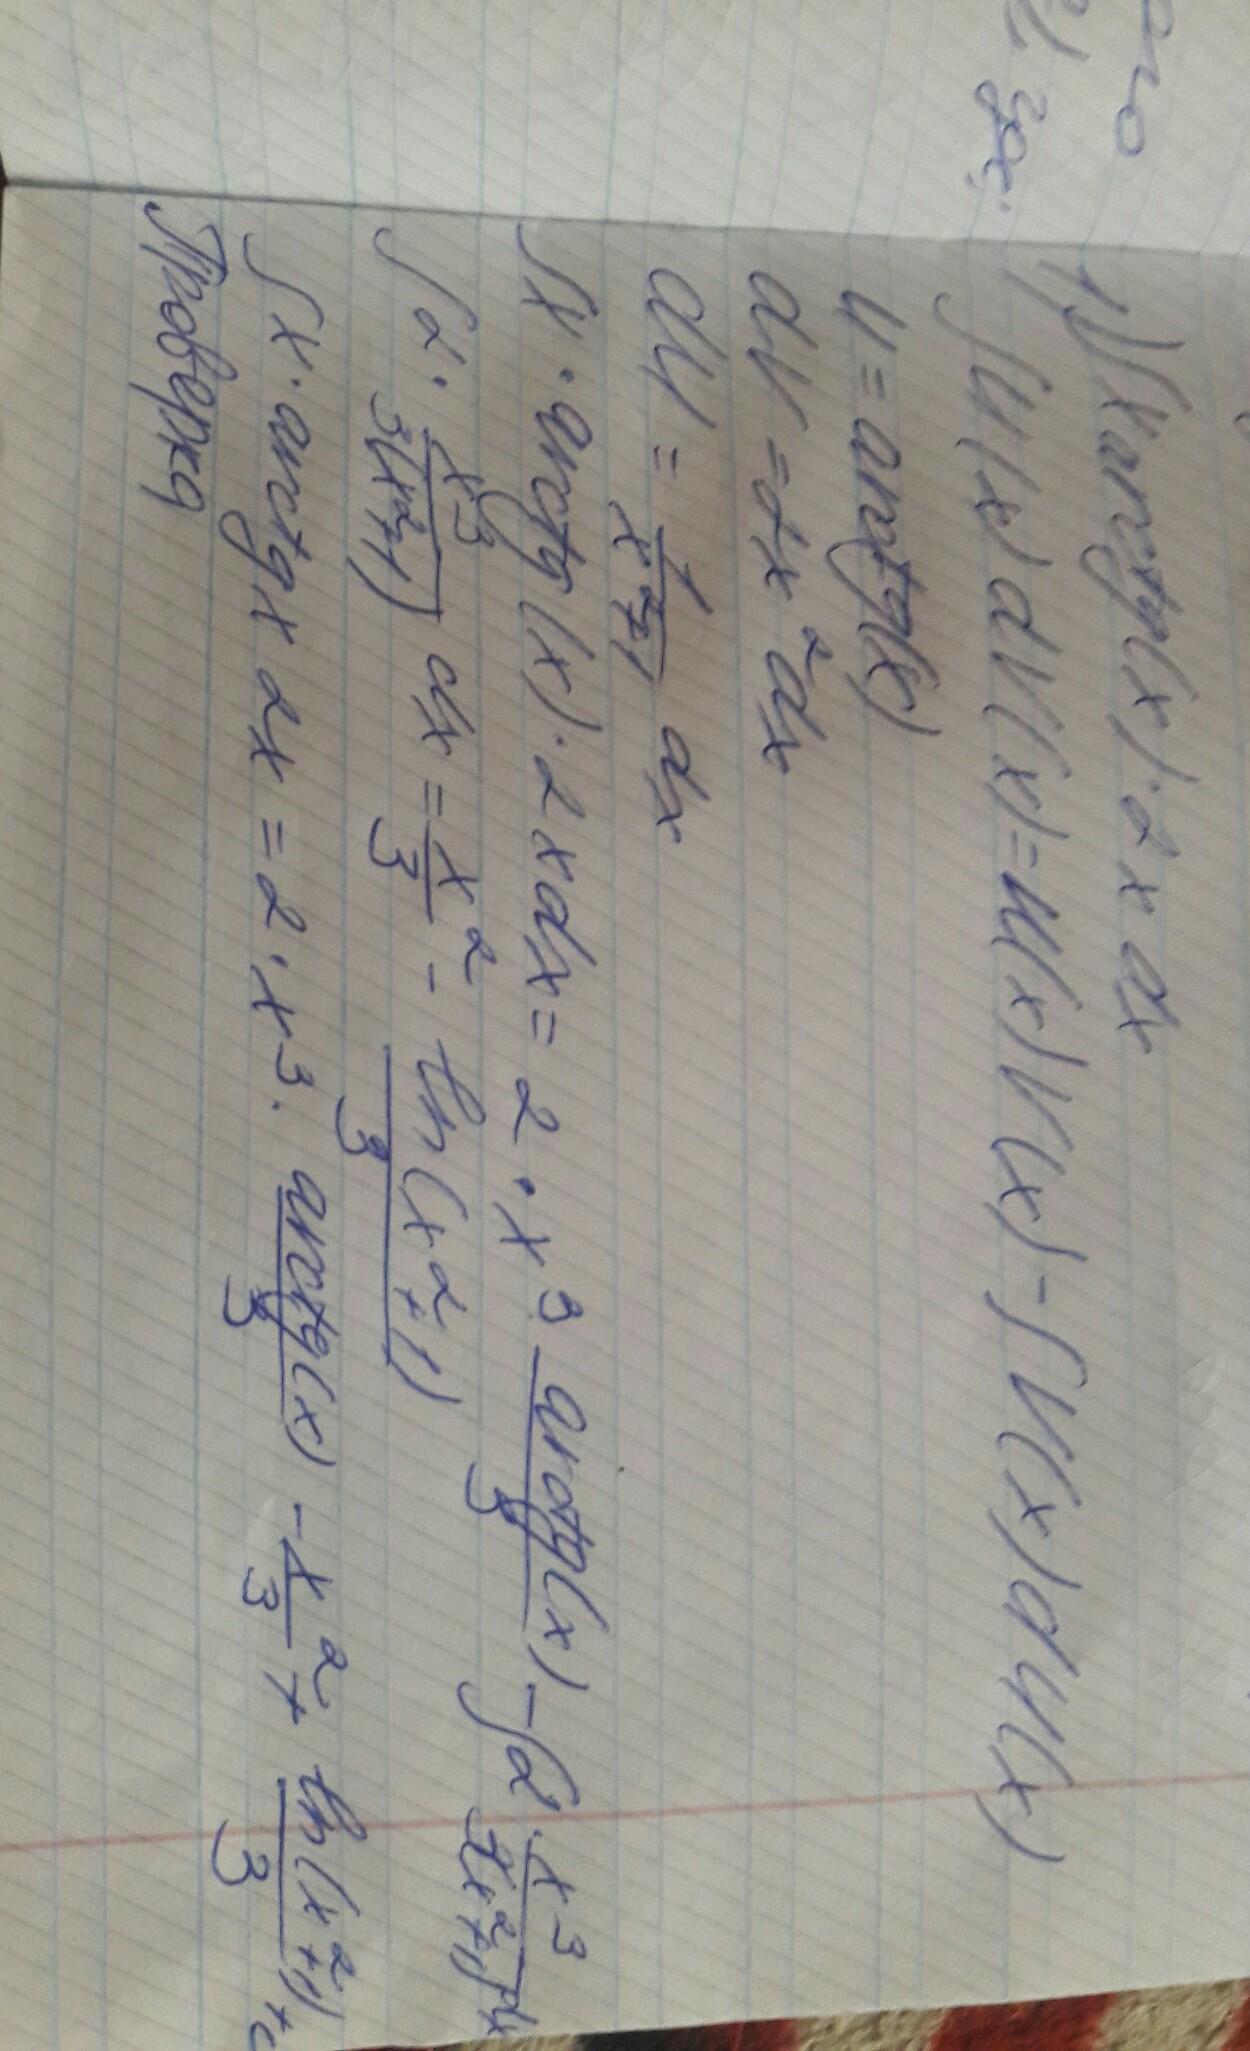 ого
и ух.
1) ∫x arctg(x)·2x dx
∫U(x) dV(x) = U(x)V(x) - ∫V(x)dU(x)
u = arctg(x)
dV = 2x² dx
dU = 1/(x²+1) dx
∫x·arctg(x)·2xdx = 2·x³ arctg(x)/3 - ∫2·x³/3(x²+1) dx
∫2·x³/3(x²+1) dx = x²/3 - ln(x²+1)/3
∫x·arctgx 2x = 2·x³·arctg(x)/3 - x²/3 + ln(x²+1)/3 + c
Проверка